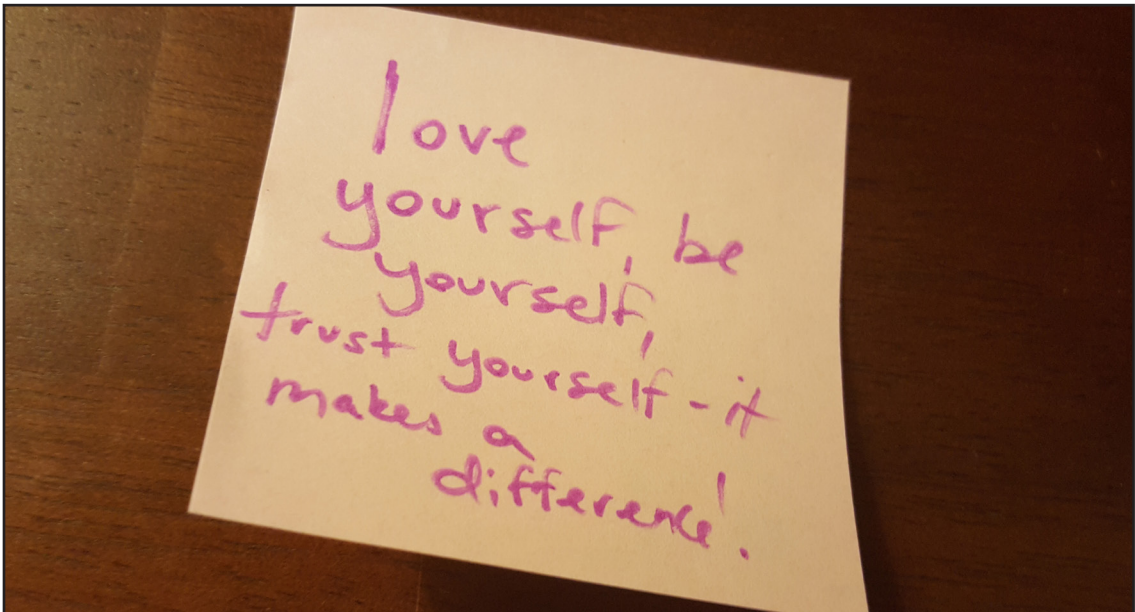 love
yourself, be
yourself,
trust yourself - it
makes a
difference!